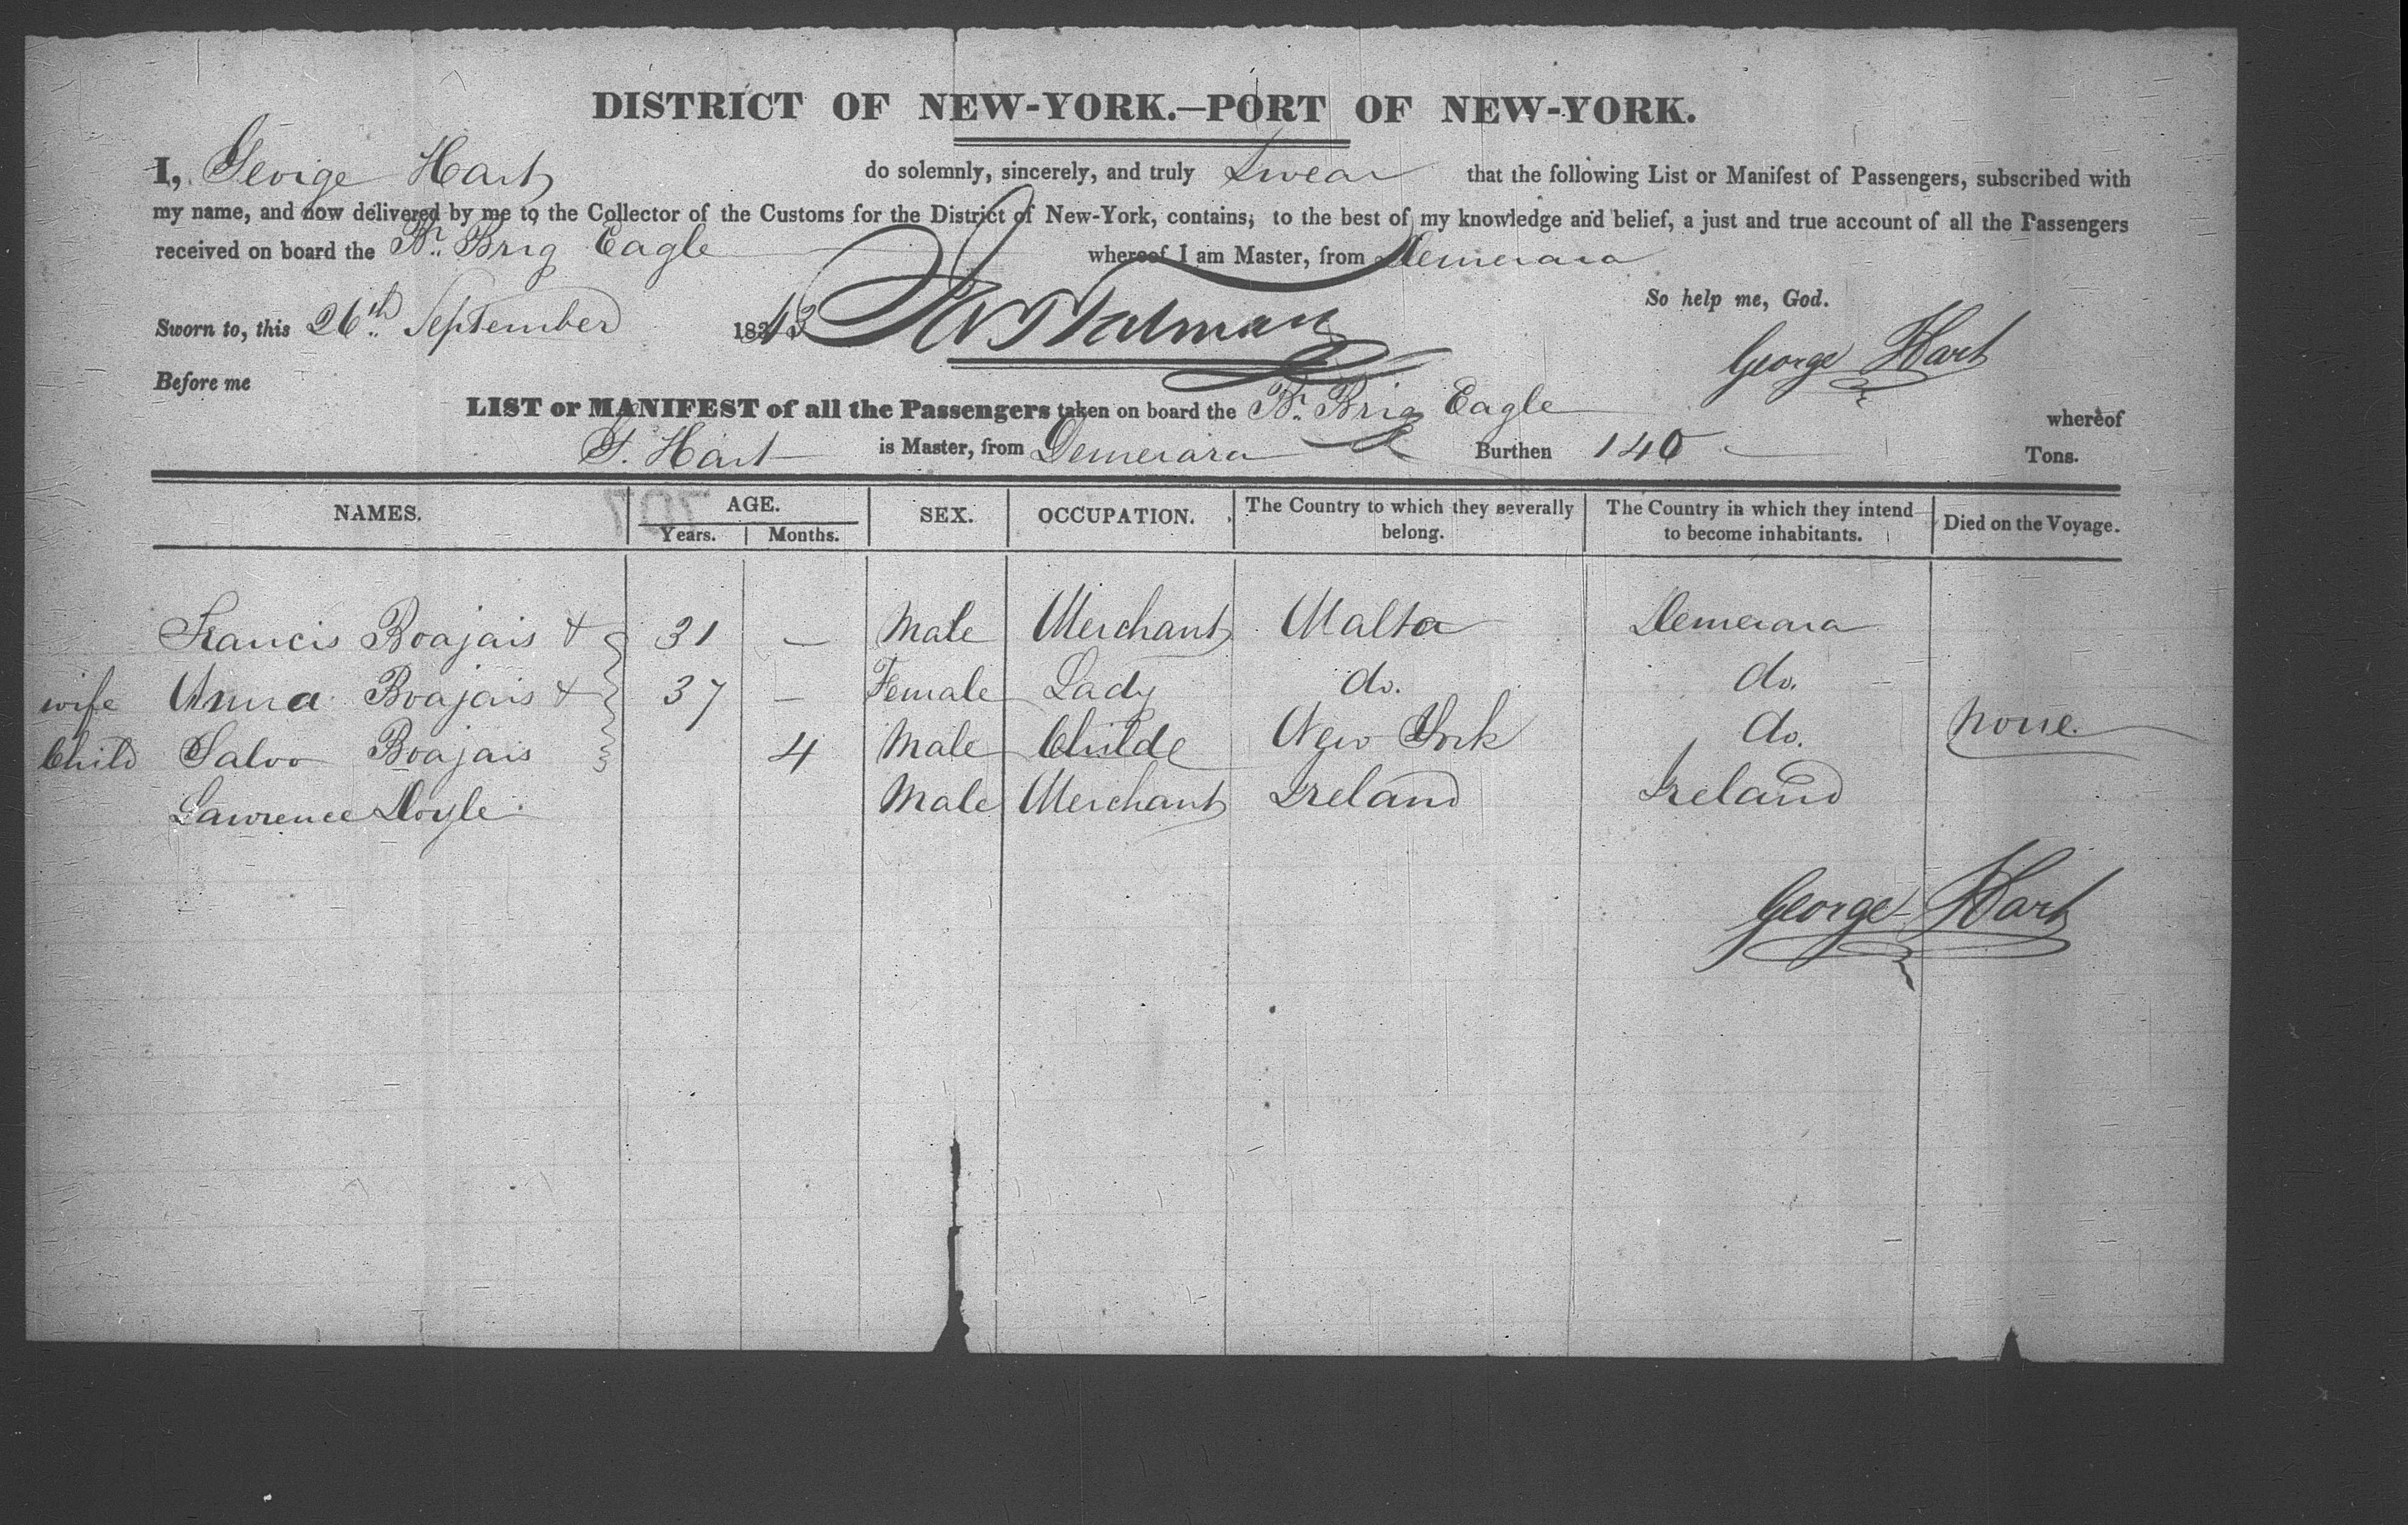 DISTRICT OF NEW-YORK.—PORT OF NEW-YORK.
I, George Hart do solemnly, sincerely, and truly Swear that the following List or Manifest of Passengers, subscribed with
my name, and now delivered by me to the Collector of the Customs for the District of New-York, contains, to the best of my knowledge and belief, a just and true account of all the Passengers
received on board the Br. Brig Eagle whereof I am Master, from Demerara
So help me, God.
Sworn to, this 26th September 1843
George Hart
Before me
LIST or MANIFEST of all the Passengers taken on board the Br. Brig Eagle whereof
G. Hart is Master, from Demerara Burthen 140 Tons.
NAMES. AGE. SEX. OCCUPATION. The Country to which they severally belong. The Country in which they intend to become inhabitants. Died on the Voyage.
Years. Months.
Francis Boajais + 31 — Male Merchant Malta Demerara
wife Anna Boajais + 37 — Female Lady do. do.
Child Salvo Boajais 4 Male Childe New York do. none.
Lawrence Doyle Male Merchant Ireland Ireland
George Hart